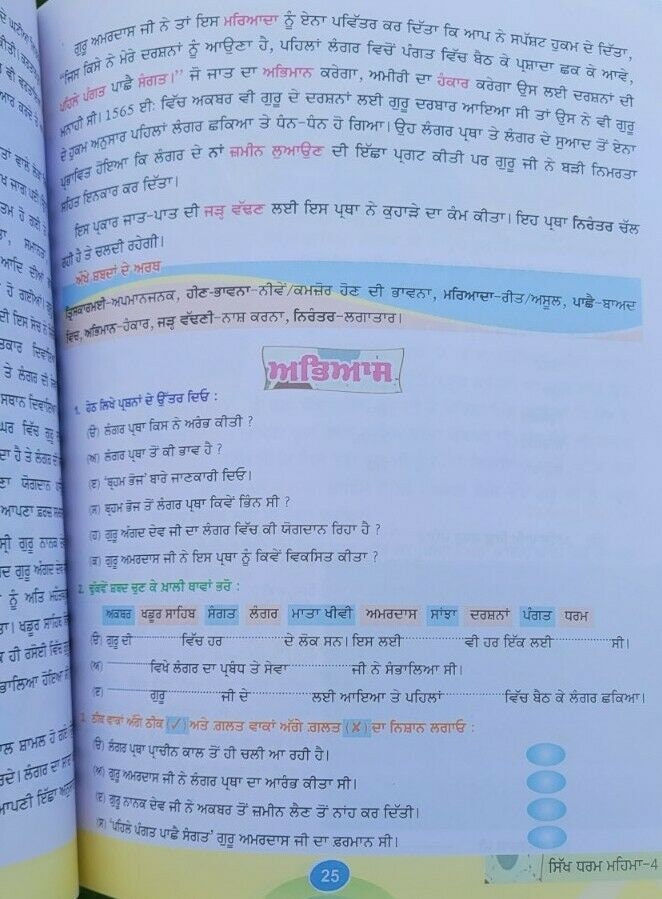 ਗੁਰੂ ਅਮਰਦਾਸ ਜੀ ਨੇ ਤਾਂ ਇਸ ਮਰਿਆਦਾ ਨੂੰ ਏਨਾ ਪਵਿੱਤਰ ਕਰ ਦਿੱਤਾ ਕਿ ਆਪ ਨੇ ਸਪੱਸ਼ਟ ਹੁਕਮ ਦੇ ਦਿੱਤਾ,
"ਜਿਸ ਕਿਸੇ ਨੇ ਮੇਰੇ ਦਰਸ਼ਨਾਂ ਨੂੰ ਆਉਣਾ ਹੈ, ਪਹਿਲਾਂ ਲੰਗਰ ਵਿਚੋਂ ਪੰਗਤ ਵਿੱਚ ਬੈਠ ਕੇ ਪ੍ਰਸ਼ਾਦਾ ਛਕ ਕੇ ਆਵੇ,
ਪਹਿਲੇ ਪੰਗਤ ਪਾਛੈ ਸੰਗਤ।" ਜੋ ਜਾਤ ਦਾ ਅਭਿਮਾਨ ਕਰੇਗਾ, ਅਮੀਰੀ ਦਾ ਹੰਕਾਰ ਕਰੇਗਾ ਉਸ ਲਈ ਦਰਸ਼ਨਾਂ ਦੀ
ਮਨਾਹੀ ਸੀ। 1565 ਈ: ਵਿੱਚ ਅਕਬਰ ਵੀ ਗੁਰੂ ਦੇ ਦਰਸ਼ਨਾਂ ਲਈ ਗੁਰੂ ਦਰਬਾਰ ਆਇਆ ਸੀ ਤਾਂ ਉਸ ਨੇ ਵੀ ਗੁਰੂ
ਦੇ ਹੁਕਮ ਅਨੁਸਾਰ ਪਹਿਲਾਂ ਲੰਗਰ ਛਕਿਆ ਤੇ ਧੰਨ-ਧੰਨ ਹੋ ਗਿਆ। ਉਹ ਲੰਗਰ ਪ੍ਰਥਾ ਤੇ ਲੰਗਰ ਦੇ ਸੁਆਦ ਤੋਂ ਏਨਾ
ਪ੍ਰਭਾਵਿਤ ਹੋਇਆ ਕਿ ਲੰਗਰ ਦੇ ਨਾਂ ਜ਼ਮੀਨ ਲੁਆਉਣ ਦੀ ਇੱਛਾ ਪ੍ਰਗਟ ਕੀਤੀ ਪਰ ਗੁਰੂ ਜੀ ਨੇ ਬੜੀ ਨਿਮਰਤਾ
ਸਹਿਤ ਇਨਕਾਰ ਕਰ ਦਿੱਤਾ।
ਇਸ ਪ੍ਰਕਾਰ ਜਾਤ-ਪਾਤ ਦੀ ਜੜ੍ਹ ਵੱਢਣ ਲਈ ਇਸ ਪ੍ਰਥਾ ਨੇ ਕੁਹਾੜੇ ਦਾ ਕੰਮ ਕੀਤਾ। ਇਹ ਪ੍ਰਥਾ ਨਿਰੰਤਰ ਚੱਲ
ਰਹੀ ਹੈ ਤੇ ਚਲਦੀ ਰਹੇਗੀ।
ਔਖੇ ਸ਼ਬਦਾਂ ਦੇ ਅਰਥ
ਤ੍ਰਿਸਕਾਰਮਈ-ਅਪਮਾਨਜਨਕ, ਹੀਣ-ਭਾਵਨਾ-ਨੀਵੇਂ/ਕਮਜ਼ੋਰ ਹੋਣ ਦੀ ਭਾਵਨਾ, ਮਰਿਆਦਾ-ਰੀਤ/ਅਸੂਲ, ਪਾਛੈ-ਬਾਅਦ
ਵਿਚ, ਅਭਿਮਾਨ-ਹੰਕਾਰ, ਜੜ੍ਹ ਵੱਢਣੀ-ਨਾਸ਼ ਕਰਨਾ, ਨਿਰੰਤਰ-ਲਗਾਤਾਰ।
ਅਭਿਆਸ
1. ਹੇਠ ਲਿਖੇ ਪ੍ਰਸ਼ਨਾਂ ਦੇ ਉੱਤਰ ਦਿਓ :
(ੳ) ਲੰਗਰ ਪ੍ਰਥਾ ਕਿਸ ਨੇ ਅਰੰਭ ਕੀਤੀ ?
(ਅ) ਲੰਗਰ ਪ੍ਰਥਾ ਤੋਂ ਕੀ ਭਾਵ ਹੈ ?
(ੲ) 'ਬ੍ਰਹਮ ਭੋਜ' ਬਾਰੇ ਜਾਣਕਾਰੀ ਦਿਓ।
(ਸ) ਬ੍ਰਹਮ ਭੋਜ ਤੋਂ ਲੰਗਰ ਪ੍ਰਥਾ ਕਿਵੇਂ ਭਿੰਨ ਸੀ ?
(ਹ) ਗੁਰੂ ਅੰਗਦ ਦੇਵ ਜੀ ਦਾ ਲੰਗਰ ਵਿੱਚ ਕੀ ਯੋਗਦਾਨ ਰਿਹਾ ਹੈ ?
(ਕ) ਗੁਰੂ ਅਮਰਦਾਸ ਜੀ ਨੇ ਇਸ ਪ੍ਰਥਾ ਨੂੰ ਕਿਵੇਂ ਵਿਕਸਿਤ ਕੀਤਾ ?
2. ਢੁੱਕਵੇਂ ਸ਼ਬਦ ਚੁਣ ਕੇ ਖ਼ਾਲੀ ਥਾਵਾਂ ਭਰੋ :
ਅਕਬਰ ਖਡੂਰ ਸਾਹਿਬ ਸੰਗਤ ਲੰਗਰ ਮਾਤਾ ਖੀਵੀ ਅਮਰਦਾਸ ਸਾਂਝਾ ਦਰਸ਼ਨਾਂ ਪੰਗਤ ਧਰਮ
(ੳ) ਗੁਰੂ ਦੀ ............ ਵਿੱਚ ਹਰ ............ ਦੇ ਲੋਕ ਸਨ। ਇਸ ਲਈ ............ ਵੀ ਹਰ ਇੱਕ ਲਈ ............ ਸੀ।
(ਅ) ............ ਵਿਖੇ ਲੰਗਰ ਦਾ ਪ੍ਰਬੰਧ ਤੇ ਸੇਵਾ ............ ਜੀ ਨੇ ਸੰਭਾਲਿਆ ਸੀ।
(ੲ) ............ ਗੁਰੂ ............ ਜੀ ਦੇ ............ ਲਈ ਆਇਆ ਤੇ ਪਹਿਲਾਂ ............ ਵਿੱਚ ਬੈਠ ਕੇ ਲੰਗਰ ਛਕਿਆ।
3. ਠੀਕ ਵਾਕਾਂ ਅੱਗੇ ਠੀਕ (✓) ਅਤੇ ਗ਼ਲਤ ਵਾਕਾਂ ਅੱਗੇ ਗ਼ਲਤ (✗) ਦਾ ਨਿਸ਼ਾਨ ਲਗਾਓ :
(ੳ) ਲੰਗਰ ਪ੍ਰਥਾ ਪ੍ਰਾਚੀਨ ਕਾਲ ਤੋਂ ਹੀ ਚਲੀ ਆ ਰਹੀ ਹੈ।
(ਅ) ਗੁਰੂ ਅਮਰਦਾਸ ਜੀ ਨੇ ਲੰਗਰ ਪ੍ਰਥਾ ਦਾ ਆਰੰਭ ਕੀਤਾ ਸੀ।
(ੲ) ਗੁਰੂ ਨਾਨਕ ਦੇਵ ਜੀ ਨੇ ਅਕਬਰ ਤੋਂ ਜ਼ਮੀਨ ਲੈਣ ਤੋਂ ਨਾਂਹ ਕਰ ਦਿੱਤੀ।
(ਸ) 'ਪਹਿਲੇ ਪੰਗਤ ਪਾਛੈ ਸੰਗਤ' ਗੁਰੂ ਅਮਰਦਾਸ ਜੀ ਦਾ ਫ਼ਰਮਾਨ ਸੀ।
25
ਸਿੱਖ ਧਰਮ ਮਹਿਮਾ-4